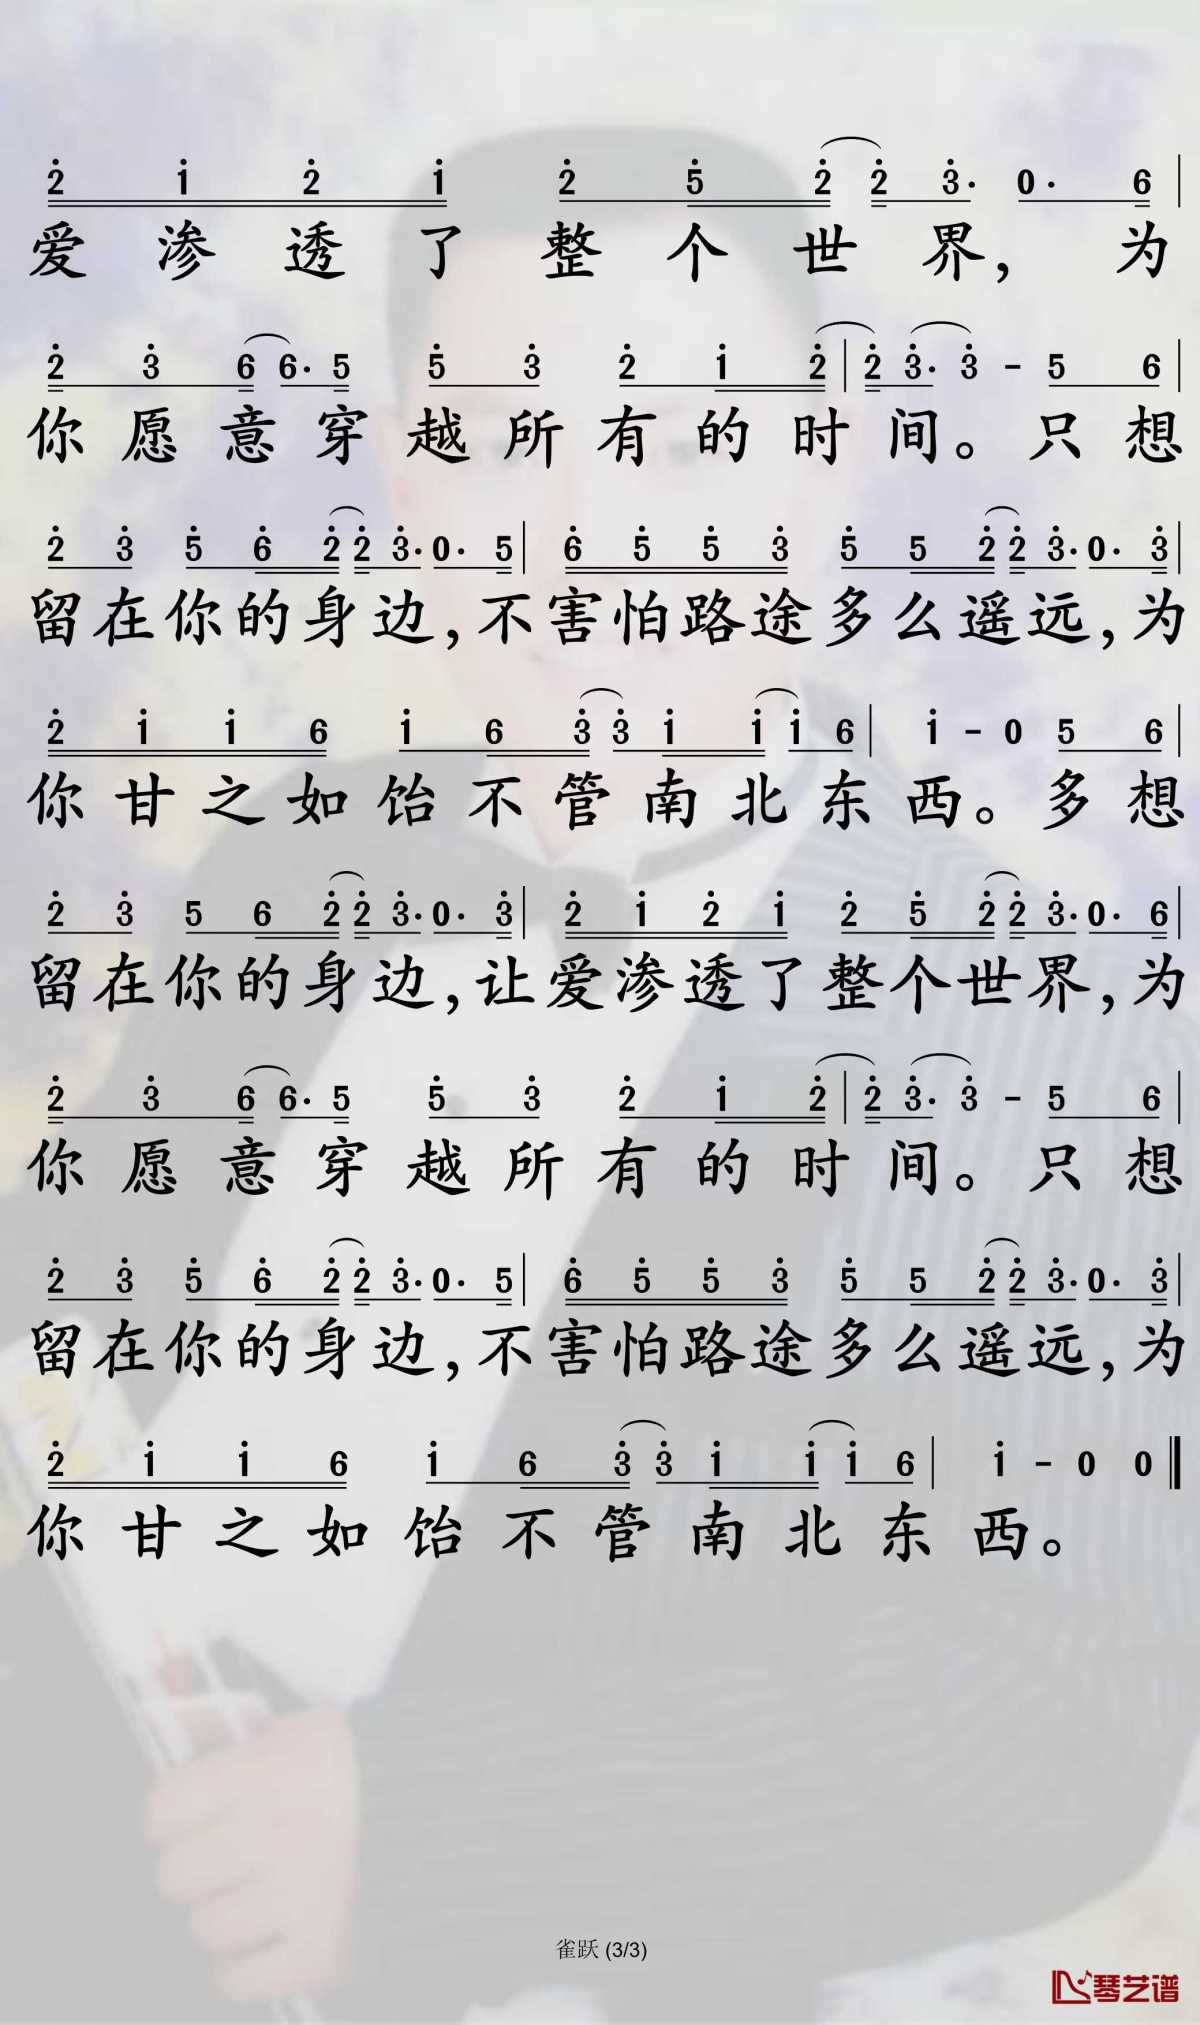 2 1 2 1 2 5 2 2 3· 0· 6
爱渗透了整个世界，为
2 3 6 6· 5 5 3 2 1 2 | 2 3· 3 - 5 6
你愿意穿越所有的时间。只想
2 3 5 6 2 2 3· 0· 5 | 6 5 5 3 5 5 2 2 3· 0· 3
留在你的身边，不害怕路途多么遥远，为
2 1 1 6 1 6 3 3 1 1 1 6 | 1 - 0 5 6
你甘之如饴不管南北东西。多想
2 3 5 6 2 2 3· 0· 3 | 2 1 2 1 2 5 2 2 3· 0· 6
留在你的身边，让爱渗透了整个世界，为
2 3 6 6· 5 5 3 2 1 2 | 2 3· 3 - 5 6
你愿意穿越所有的时间。只想
2 3 5 6 2 2 3· 0· 5 | 6 5 5 3 5 5 2 2 3· 0· 3
留在你的身边，不害怕路途多么遥远，为
2 1 1 6 1 6 3 3 1 1 1 6 | 1 - 0 0
你甘之如饴不管南北东西。
雀跃 (3/3)
琴艺谱